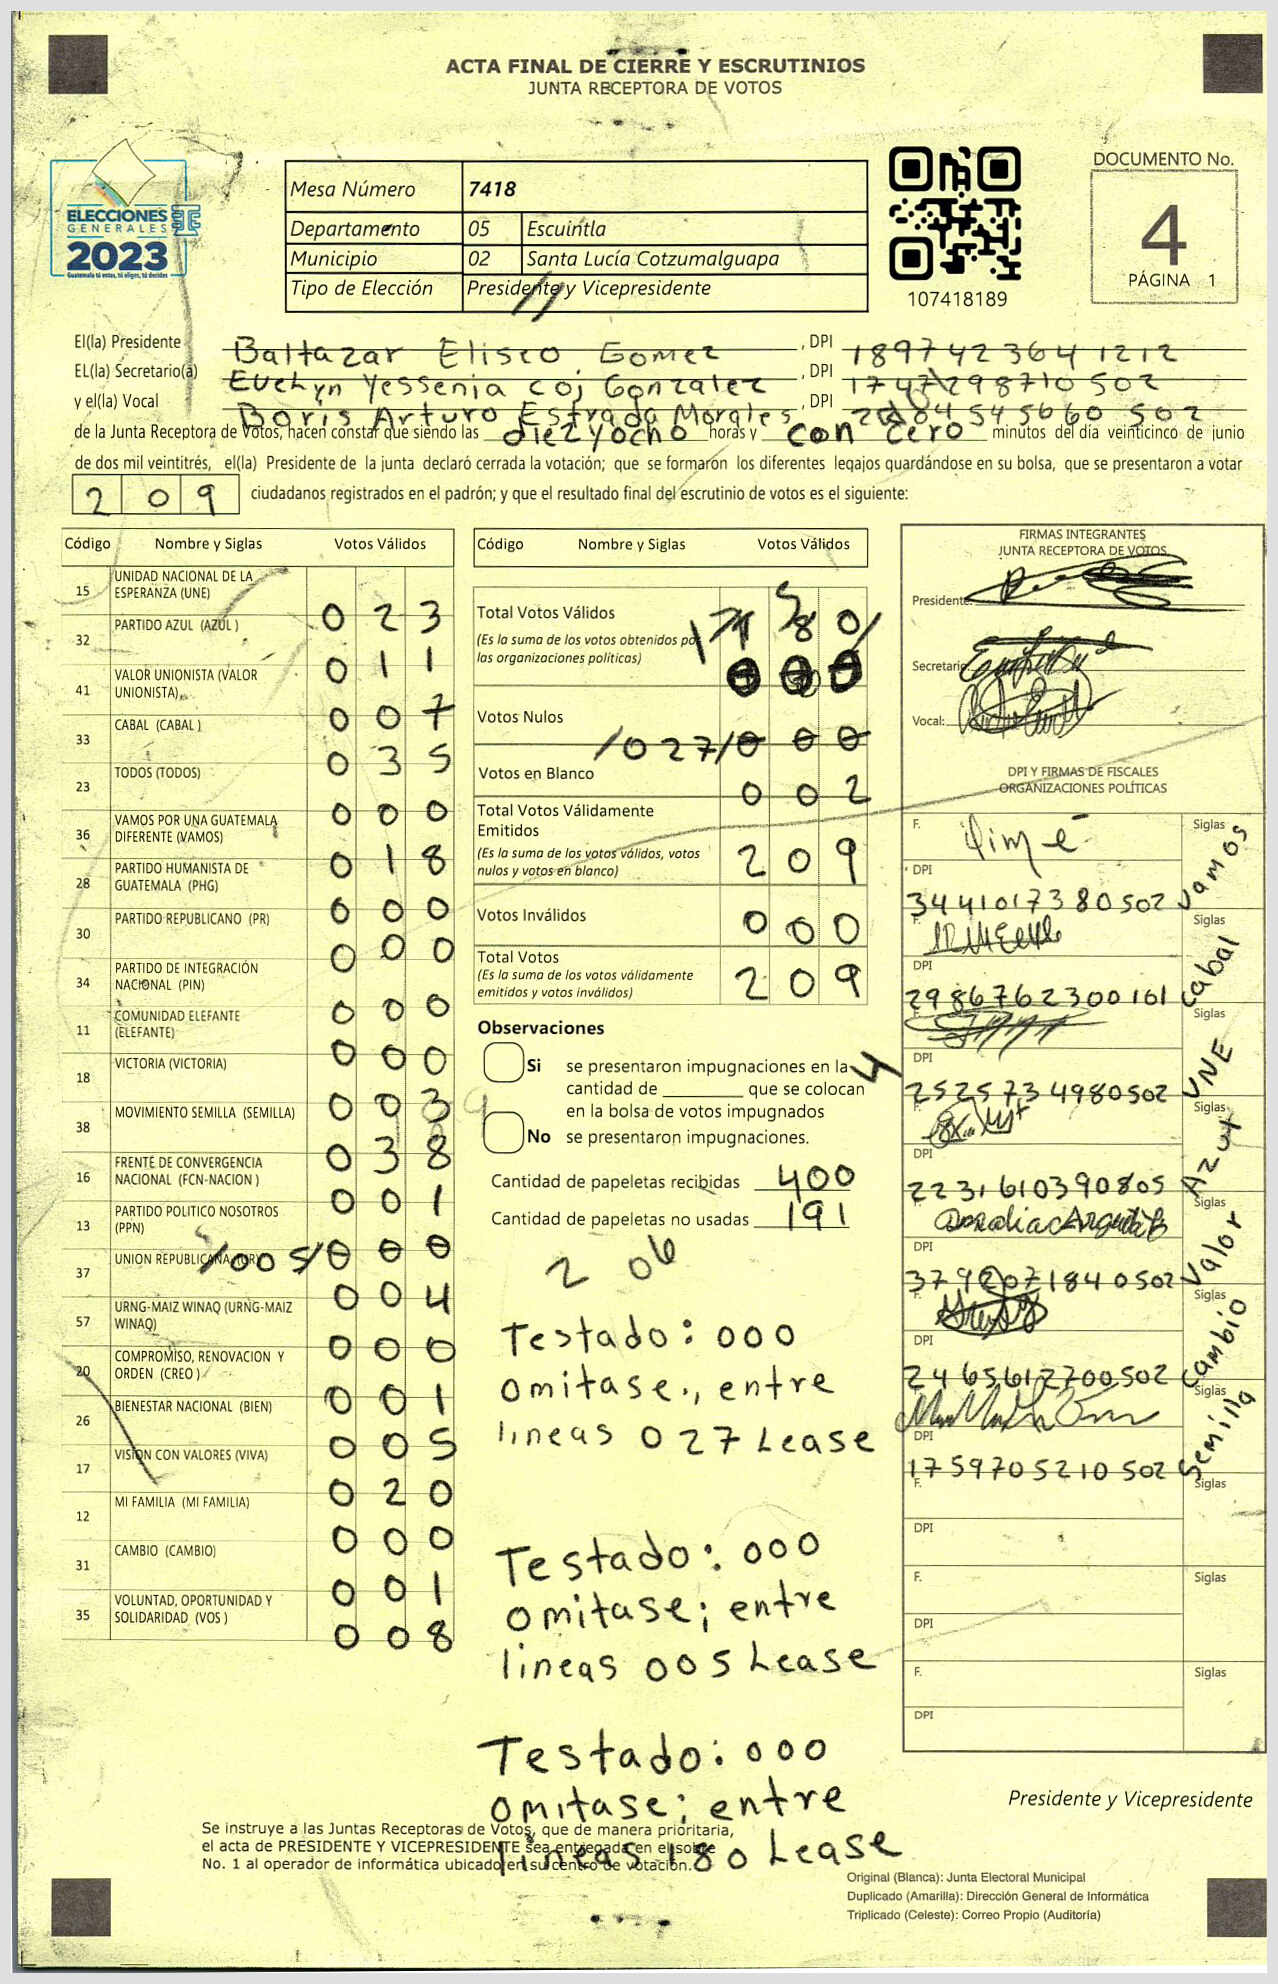 ACTA FINAL DE CIERRE Y ESCRUTINIOS
JUNTA RECEPTORA DE VOTOS
ELECCIONES
GENERALES
2023
Guatemala tú entas, tú eliges, tú decides
Mesa Número 7418
Departamento 05 Escuintla
Municipio 02 Santa Lucía Cotzumalguapa
Tipo de Elección Presidente y Vicepresidente
107418189
DOCUMENTO No.
4
PÁGINA 1
El(la) Presidente Baltazar Eliseo Gomez, DPI 1897423641212
EL(la) Secretario(a) Evelyn Yessenia Coj Gonzalez, DPI 1747298710502
y el(la) Vocal Boris Arturo Estrada Morales, DPI 2284545660 502
de la Junta Receptora de Votos, hacen constar que siendo las diez y ocho horas y con cero minutos del día veinticinco de junio
de dos mil veintitrés, el(la) Presidente de la junta declaró cerrada la votación; que se formaron los diferentes legajos guardándose en su bolsa, que se presentaron a votar
209 ciudadanos registrados en el padrón; y que el resultado final del escrutinio de votos es el siguiente:
Código Nombre y Siglas Votos Válidos
15 UNIDAD NACIONAL DE LA ESPERANZA (UNE) 023
32 PARTIDO AZUL (AZUL ) 011
41 VALOR UNIONISTA (VALOR UNIONISTA) 007
33 CABAL (CABAL ) 035
23 TODOS (TODOS) 000
36 VAMOS POR UNA GUATEMALA DIFERENTE (VAMOS) 018
28 PARTIDO HUMANISTA DE GUATEMALA (PHG) 000
30 PARTIDO REPUBLICANO (PR) 000
34 PARTIDO DE INTEGRACIÓN NACIONAL (PIN) 000
11 COMUNIDAD ELEFANTE (ELEFANTE) 000
18 VICTORIA (VICTORIA) 003
38 MOVIMIENTO SEMILLA (SEMILLA) 038
16 FRENTE DE CONVERGENCIA NACIONAL (FCN-NACION ) 001
13 PARTIDO POLITICO NOSOTROS (PPN) /005/ 000
37 UNION REPUBLICANA (UR) 004
57 URNG-MAIZ WINAQ (URNG-MAIZ WINAQ) 000
20 COMPROMISO, RENOVACION Y ORDEN (CREO ) 001
26 BIENESTAR NACIONAL (BIEN) 005
17 VISIÓN CON VALORES (VIVA) 020
12 MI FAMILIA (MI FAMILIA) 000
31 CAMBIO (CAMBIO) 001
35 VOLUNTAD, OPORTUNIDAD Y SOLIDARIDAD (VOS ) 008
Código Nombre y Siglas Votos Válidos
Total Votos Válidos 180/
(Es la suma de los votos obtenidos por las organizaciones políticas) 000
Votos Nulos /027/ 000
Votos en Blanco 002
Total Votos Válidamente Emitidos
(Es la suma de los votos válidos, votos nulos y votos en blanco) 209
Votos Inválidos 000
Total Votos
(Es la suma de los votos válidamente emitidos y votos inválidos) 209
Observaciones
Si se presentaron impugnaciones en la
cantidad de ________ que se colocan
en la bolsa de votos impugnados
No se presentaron impugnaciones.
Cantidad de papeletas recibidas 400
Cantidad de papeletas no usadas 191
2 06
Testado: 000
omitase., entre
lineas 027 Lease
Testado: 000
omitase; entre
lineas 005 Lease
Testado: 000
omitase; entre
lineas 180 Lease
FIRMAS INTEGRANTES
JUNTA RECEPTORA DE VOTOS
Presidente:
Secretario:
Vocal:
DPI Y FIRMAS DE FISCALES
ORGANIZACIONES POLÍTICAS
F. Siglas Vamos
DPI 3441017380502
F. Siglas Cabal
DPI 2986762300161
F. Siglas UNE
DPI 2525734980502
F. Siglas Azul
DPI 2231610390805
F. Siglas Valor
DPI 3792071840502
F. Siglas Cambio
DPI 2465612700502
F. Siglas Semilla
DPI 1759705210502
F. Siglas
DPI
F. Siglas
DPI
F. Siglas
DPI
Presidente y Vicepresidente
Se instruye a las Juntas Receptoras de Votos, que de manera prioritaria,
el acta de PRESIDENTE Y VICEPRESIDENTE sea entregada en el sobre
No. 1 al operador de informática ubicado en su centro de votación.
Original (Blanca): Junta Electoral Municipal
Duplicado (Amarilla): Dirección General de Informática
Triplicado (Celeste): Correo Propio (Auditoría)